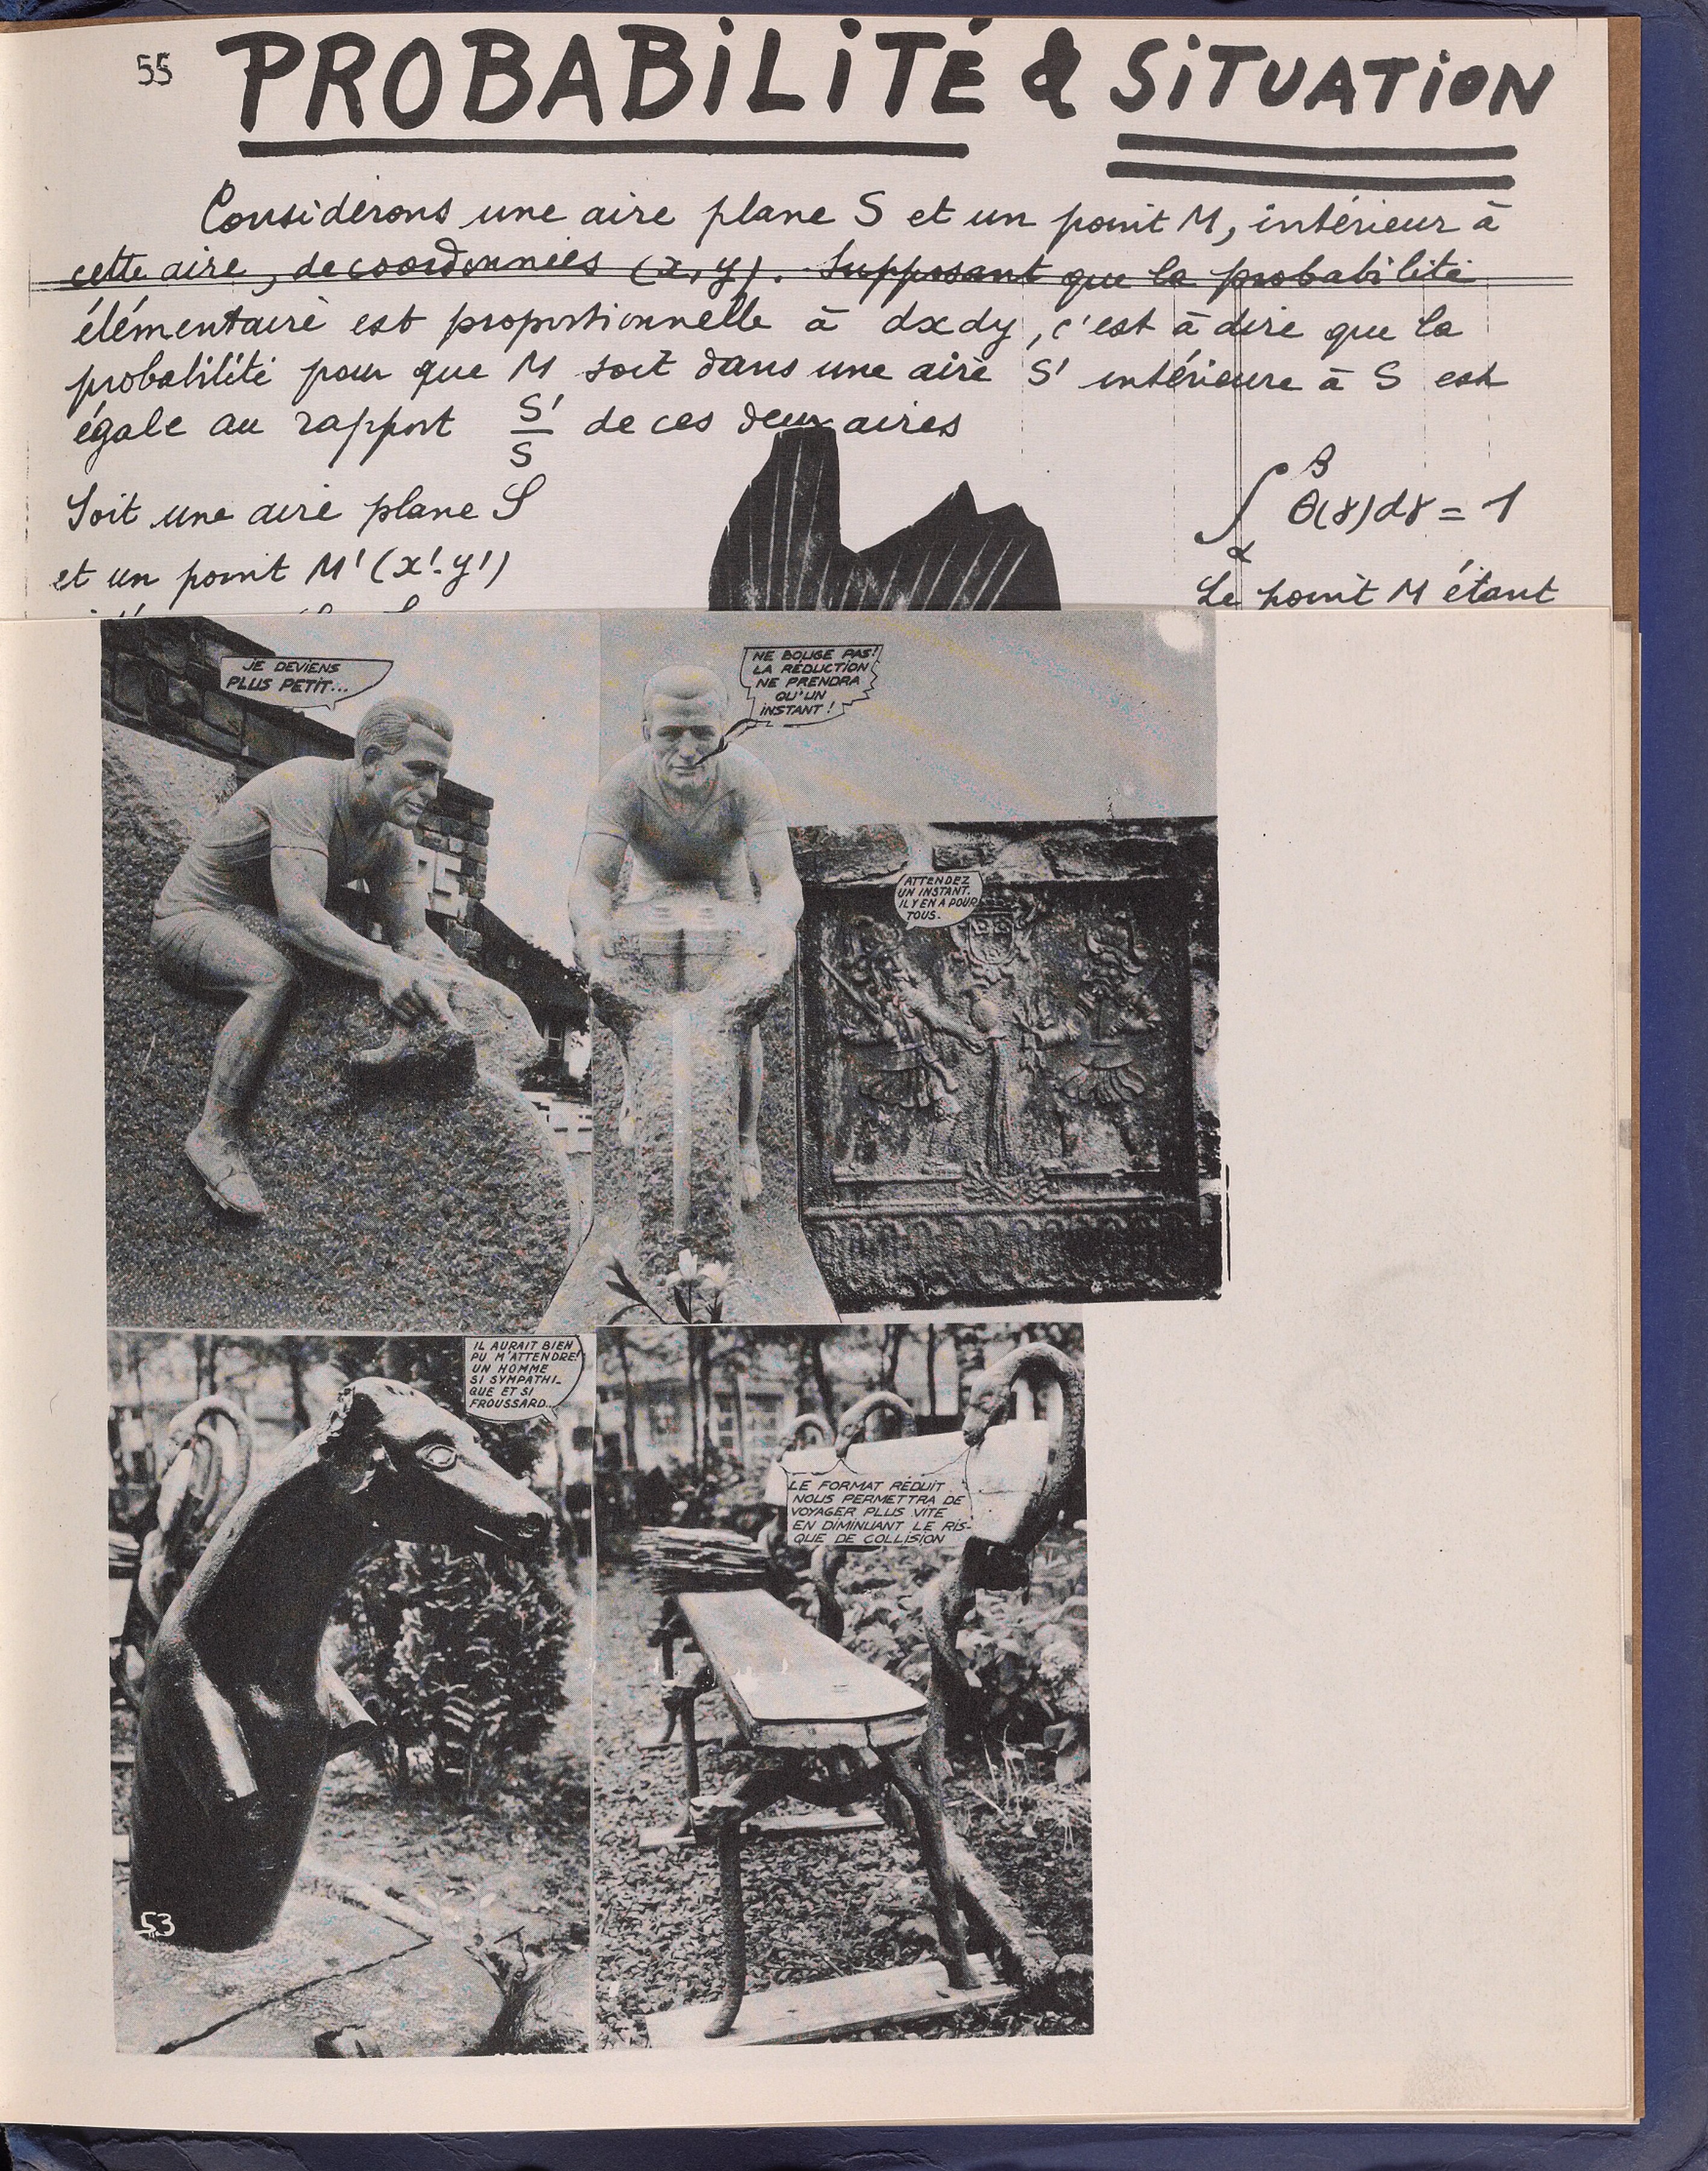 55 PROBABiLiTÉ & SiTUATiON
Considérons une aire plane S et un point M, intérieur à
cette aire, de coordonnées (x, y). Supposant que la probabilité
élémentaire est proportionnelle à dxdy, c'est à dire que la
probabilité pour que M soit dans une aire S' intérieure à S est
égale au rapport S'/S de ces deux aires
Soit une aire plane S
et un point M'(x'.y')
∫αβ θ(γ)dγ = 1
Le point M étant
JE DEVIENS
PLUS PETIT...
NE BOUGE PAS!
LA RÉDUCTION
NE PRENDRA
QU'UN
INSTANT!
75
ATTENDEZ
UN INSTANT.
IL Y EN A POUR
TOUS.
IL AURAIT BIEN
PU M'ATTENDRE!
UN HOMME
SI SYMPATHI-
QUE ET SI
FROUSSARD...
LE FORMAT RÉDUIT
NOUS PERMETTRA DE
VOYAGER PLUS VITE
EN DIMINUANT LE RIS-
QUE DE COLLISION
53